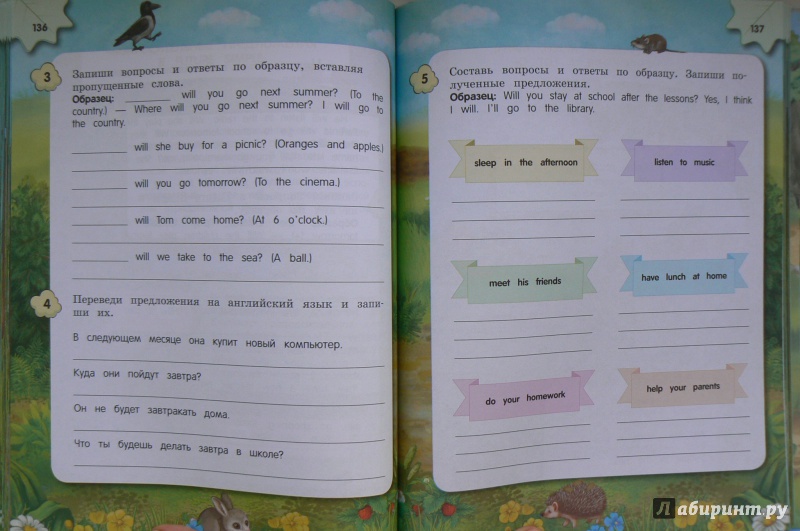 136
3
Запиши вопросы и ответы по образцу, вставляя
пропущенные слова.
Образец: ________ will you go next summer? (To the
country.) — Where will you go next summer? I will go to
the country.
________ will she buy for a picnic? (Oranges and apples.)
________ will you go tomorrow? (To the cinema.)
________ will Tom come home? (At 6 o'clock.)
________ will we take to the sea? (A ball.)
4
Переведи предложения на английский язык и запи-
ши их.
В следующем месяце она купит новый компьютер.
Куда они пойдут завтра?
Он не будет завтракать дома.
Что ты будешь делать завтра в школе?
137
5
Составь вопросы и ответы по образцу. Запиши по-
лученные предложения.
Образец: Will you stay at school after the lessons? Yes, I think
I will. I'll go to the library.
sleep in the afternoon
listen to music
meet his friends
have lunch at home
do your homework
help your parents
Лабиринт.ру